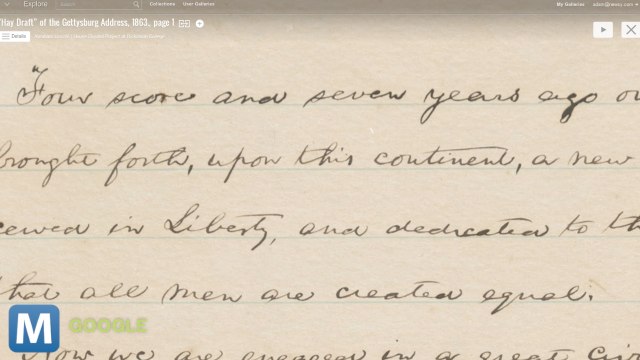 Explore
Search
Collections
User Galleries
My Galleries
"Hay Draft" of the Gettysburg Address, 1863, page 1
Details
"Four score and seven years ago ou
brought forth, upon this continent, a new
ceived in Liberty, and dedicated to th
that all men are created equal.
M GOOGLE
Now we are engaged in a great civi